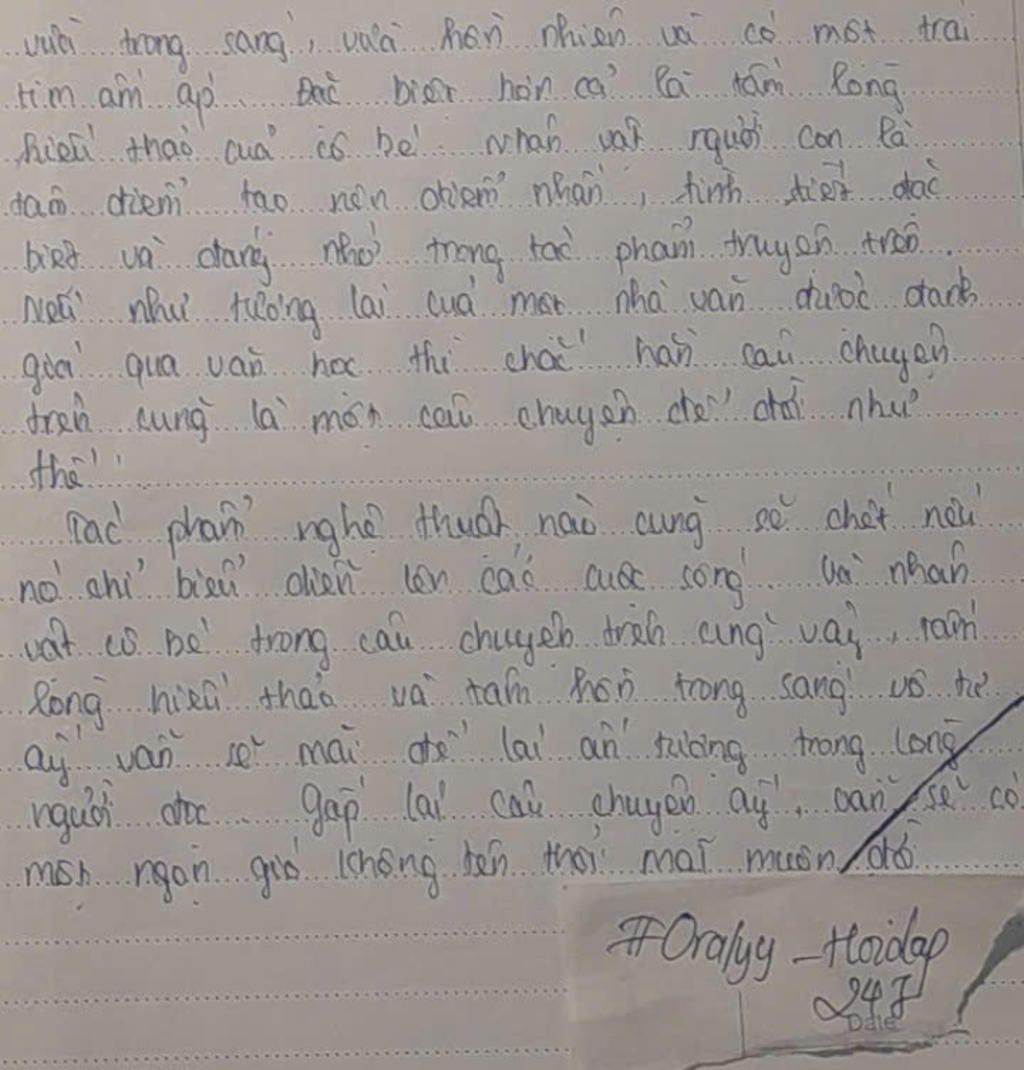 vừa trong sáng, vừa hồn nhiên và có một trái
tim ấm áp. Đặc biệt hơn cả là tấm lòng
hiếu thảo của cô bé. Nhân vật người con là
tâm điểm tạo nên điểm nhấn, tình tiết đặc
biệt và đáng nhớ trong tác phẩm truyện trên.
Nếu như tương lai của một nhà văn được đánh
giá qua văn học thì chắc hẳn câu chuyện
trên cũng là một câu chuyện để đời như
thế!
Tác phẩm nghệ thuật nào cũng sẽ chết nếu
nó chỉ biểu diễn lên các cuộc sống. Và nhân
vật cô bé trong câu chuyện trên cũng vậy, tấm
lòng hiếu thảo và tâm hồn trong sáng vô tư
ấy vẫn sẽ mãi để lại ấn tượng trong lòng
người đọc. Gấp lại câu chuyện ấy, vẫn sẽ có
một ngọn gió không tên thổi mãi muôn đó
#Oralyy _Hoidap
247
Date